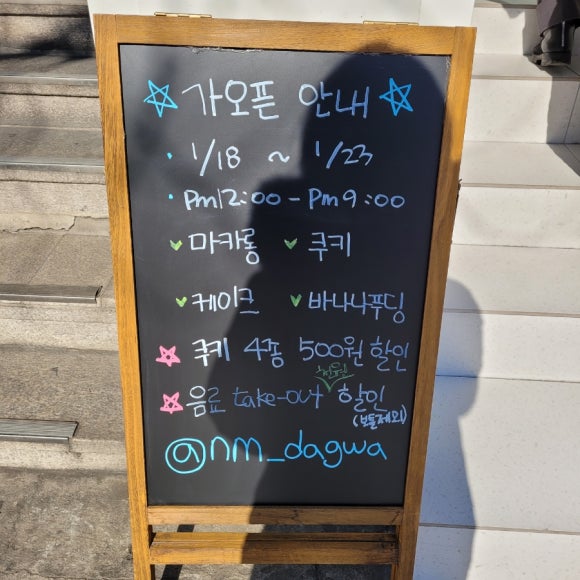 ☆ 가오픈 안내 ☆
· 1/18 ~ 1/23
· Pm12:00 - Pm9:00
마카롱 쿠키
케이크 바나나푸딩
☆ 쿠키 4종 500원 할인
천원
☆ 음료 take-out 할인
(보틀제외)
@nm_dagwa